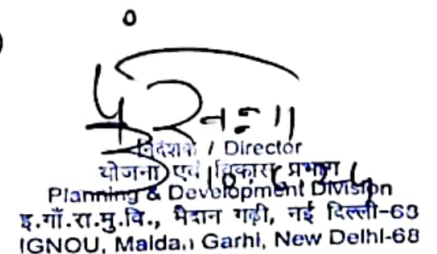 निदेशक / Director
योजना एवं विकास प्रभाग
Planning & Development Division
इ.गाँ.रा.मु.वि., मैदान गढ़ी, नई दिल्ली-68
IGNOU, Maidan Garhi, New Delhi-68